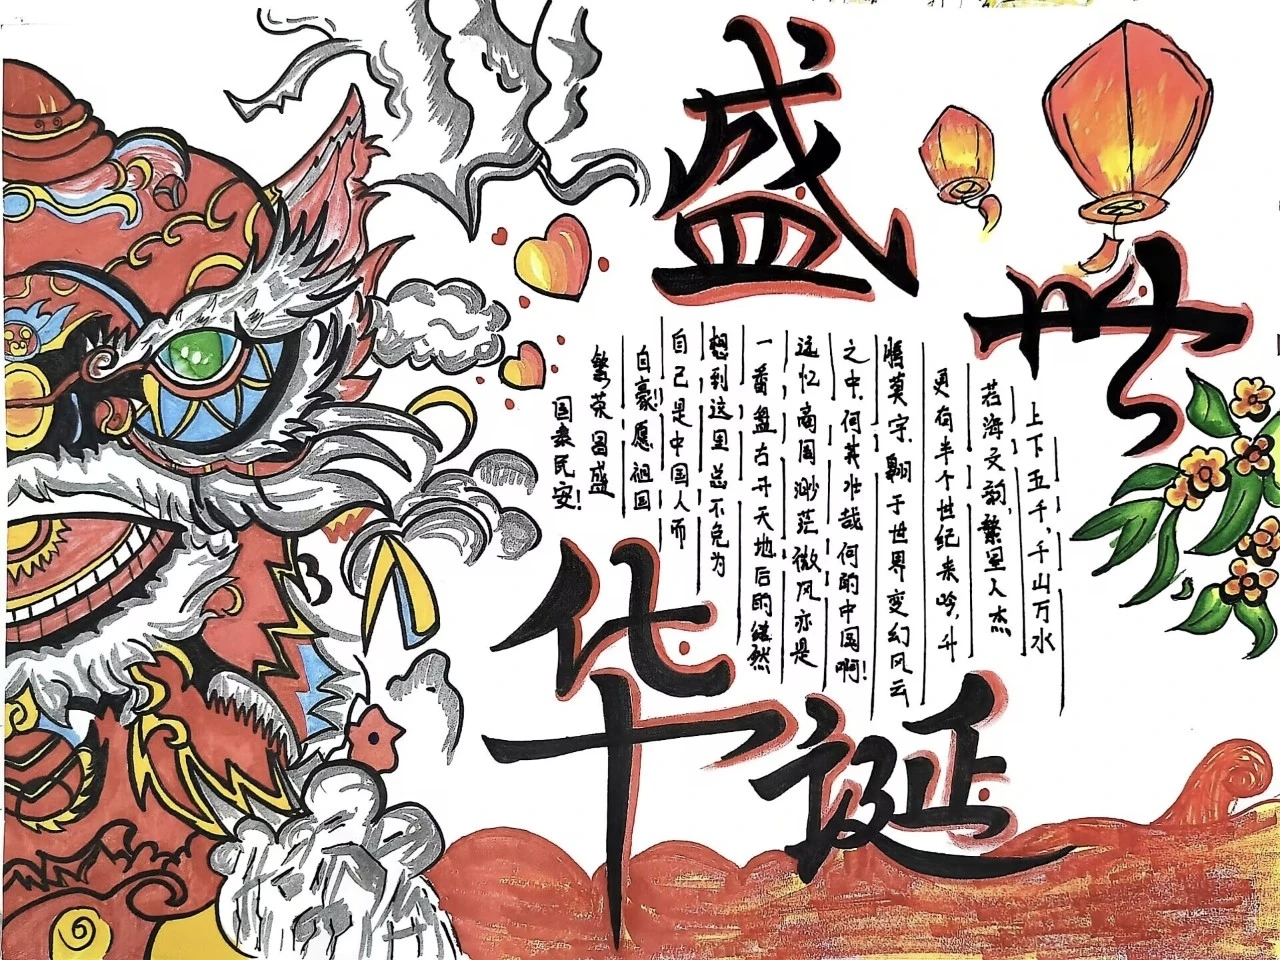 盛世
华诞
上下五千,千山万水
若海文韵,繁星人杰
更有半个世纪来吟,升
腾莫宇.翱于世界变幻风云
之中.何其壮哉何的中国啊!
这忆南国渺茫微风亦是
一番盘古开天地后的继然
想到这里总不免为
自己是中国人而
自豪!愿祖国
繁荣昌盛
国泰民安!